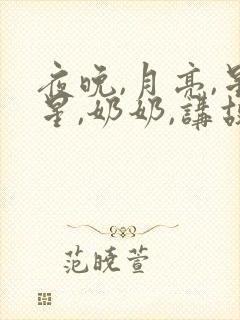 夜晚,月亮,星
星,奶奶,講故
范曉萱